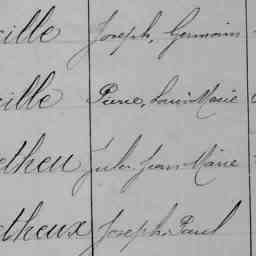 cille Joseph, Germain
cille Pierre, Louis Marie
etheu Jules Jean Marie
etheux Joseph Paul